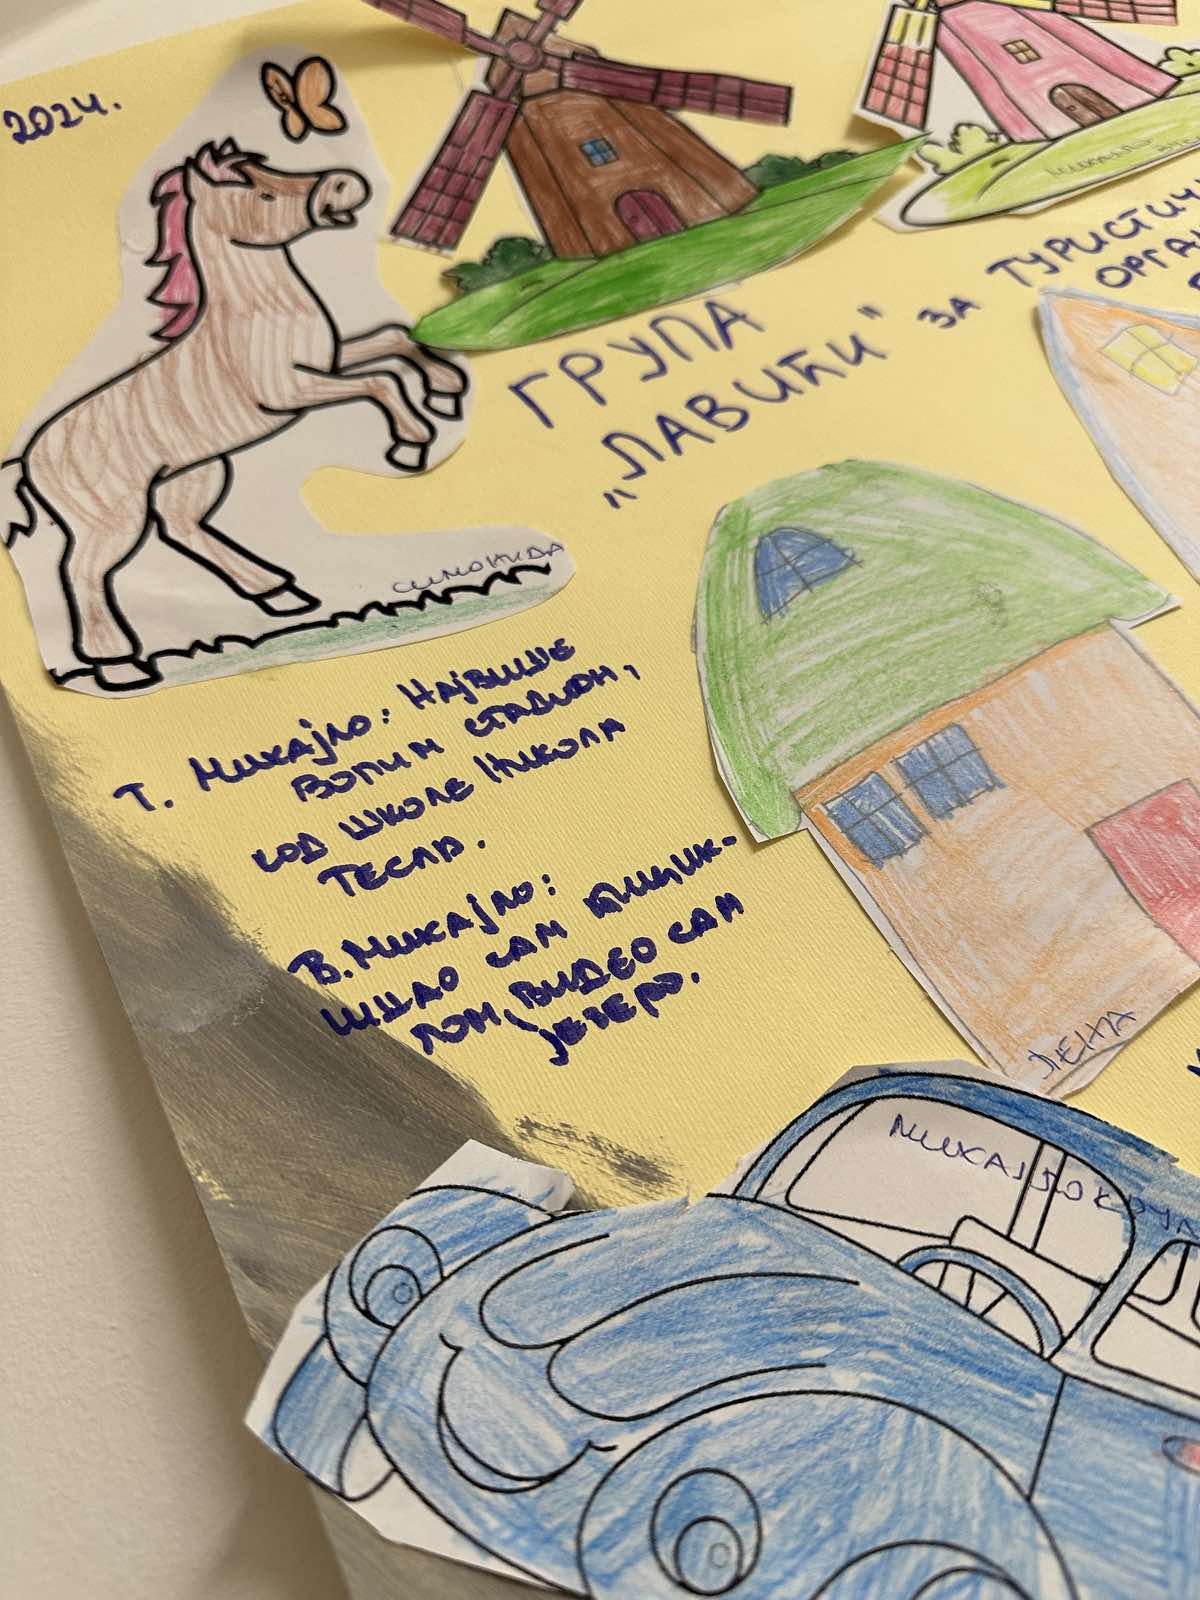 2024.
ГРУПА
„ЛАВИЋИ" ЗА ТУРИСТИЧ
ОРГА
СИМОНИДА
Т. МИХАЈЛО: НАЈВИШЕ
ВОЛИМ СТАДИОН,
КОД ШКОЛЕ НИКОЛА
ТЕСЛА.
В. МИХАЈЛО:
ИШАО САМ
ВИДЕО САМ
ЈЕЗЕРО.
ЛЕНА
МИХАЈЛО